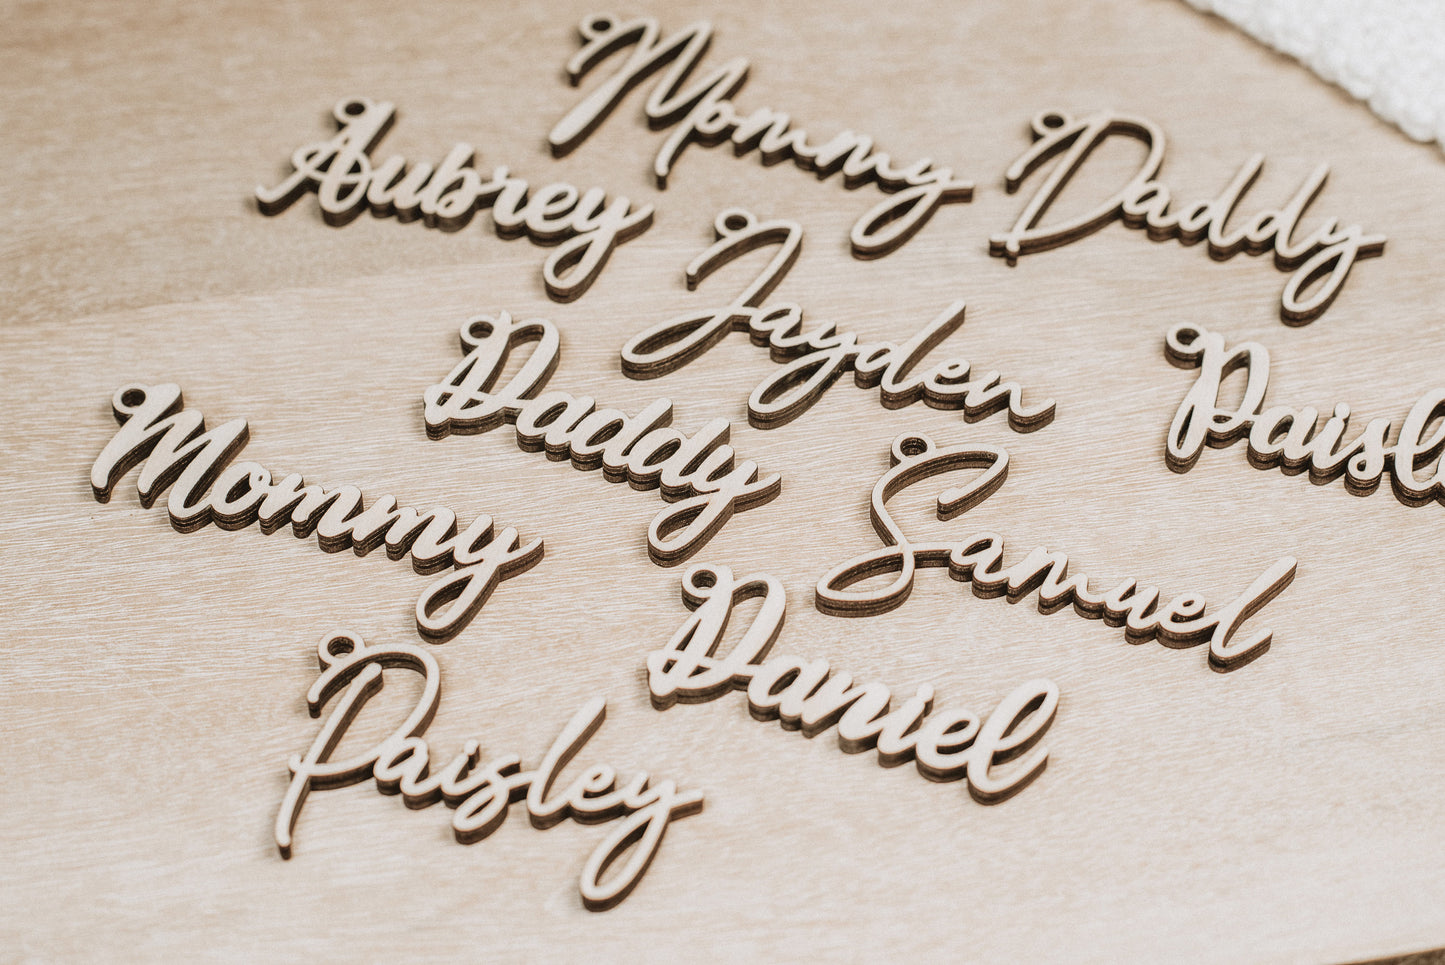 Mommy
Aubrey
Daddy
Jayden
Daddy
Paisl
Mommy
Samuel
Daniel
Paisley